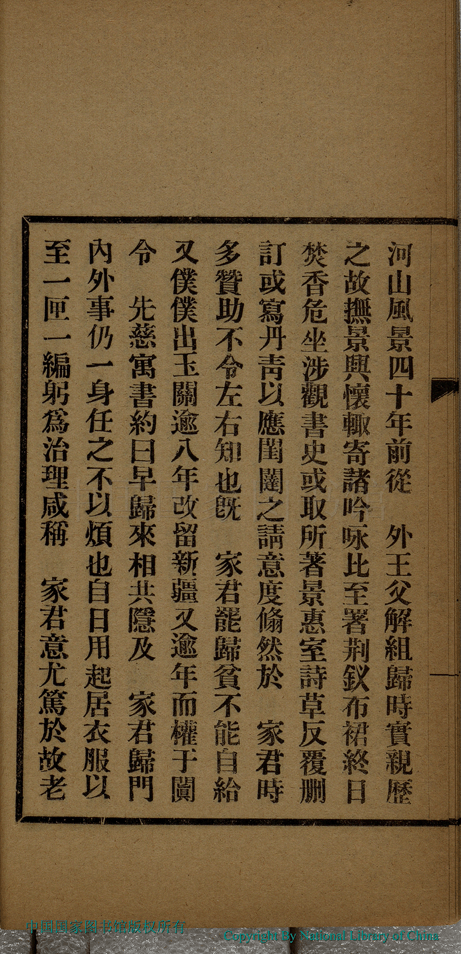 河山風景四十年前從　外王父解組歸時實親歷
之故撫景興懷輙寄諸吟咏比至署荆釵布裙終日
焚香危坐涉觀書史或取所著景惠室詩草反覆刪
訂或寫丹青以應閨闥之請意度翛然於　家君時
多贊助不令左右知也旣　家君罷歸貧不能自給
又僕僕出玉關逾八年改留新疆又逾年而權于闐
令　先慈寓書約曰早歸來相共隱及　家君歸門
內外事仍一身任之不以煩也自日用起居衣服以
至一匣一編躬爲治理咸稱　家君意尤篤於故老
中国国家图书馆版权所有
Copyright by National Library of China